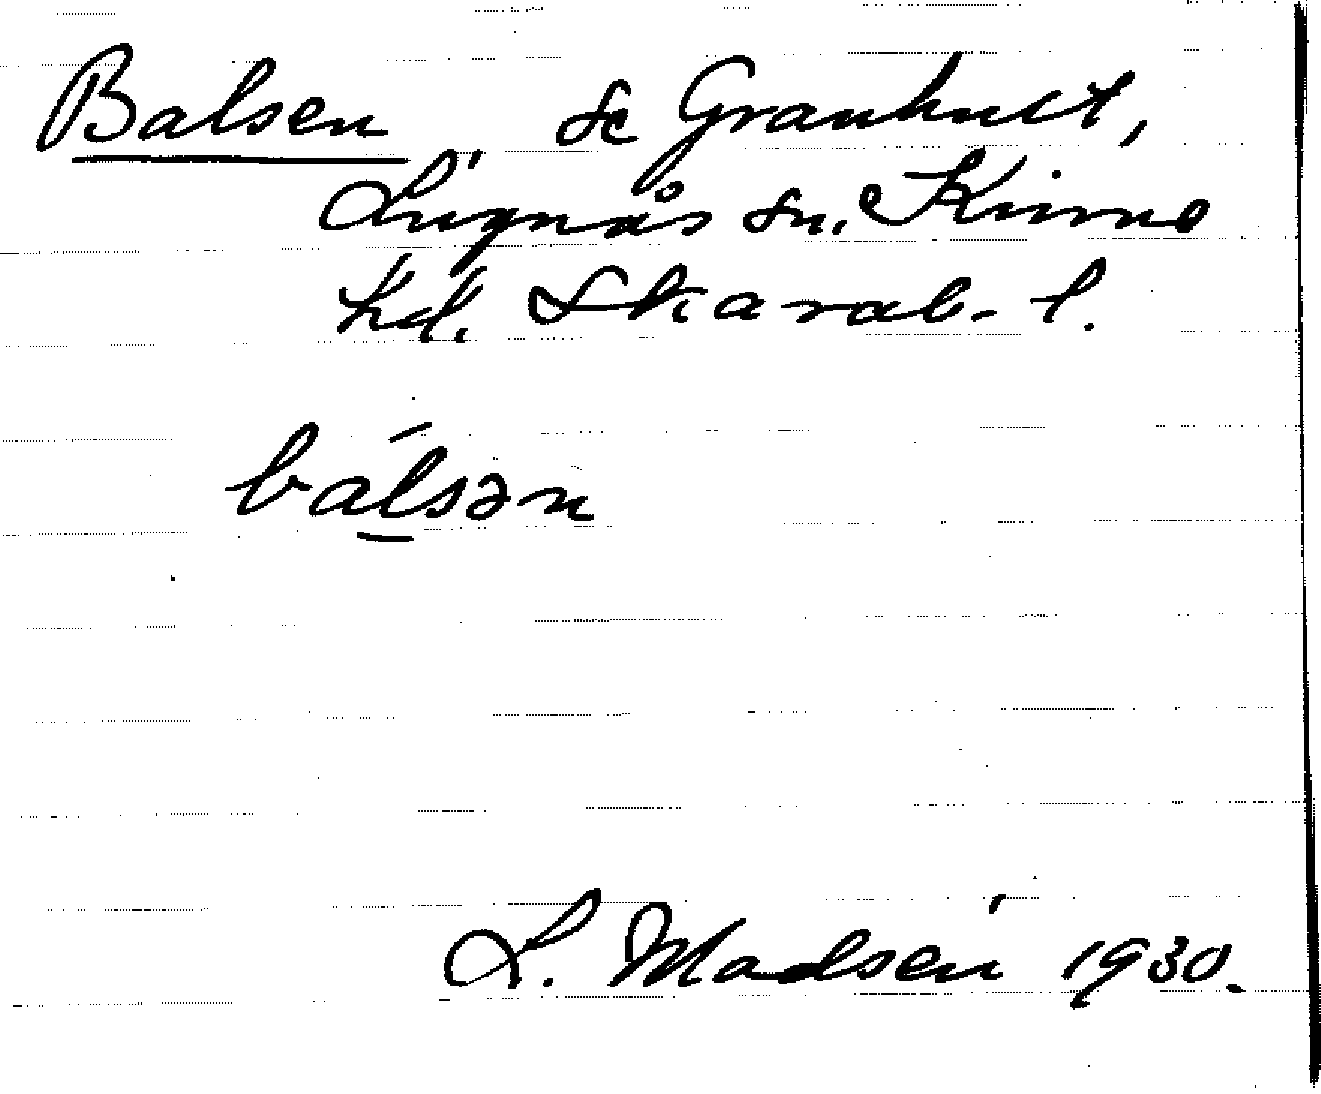 Balsen se Granhult,
Lugnås sn. Kinne
hd. Skarab. l.
bálsən
L. Madsén 1930.